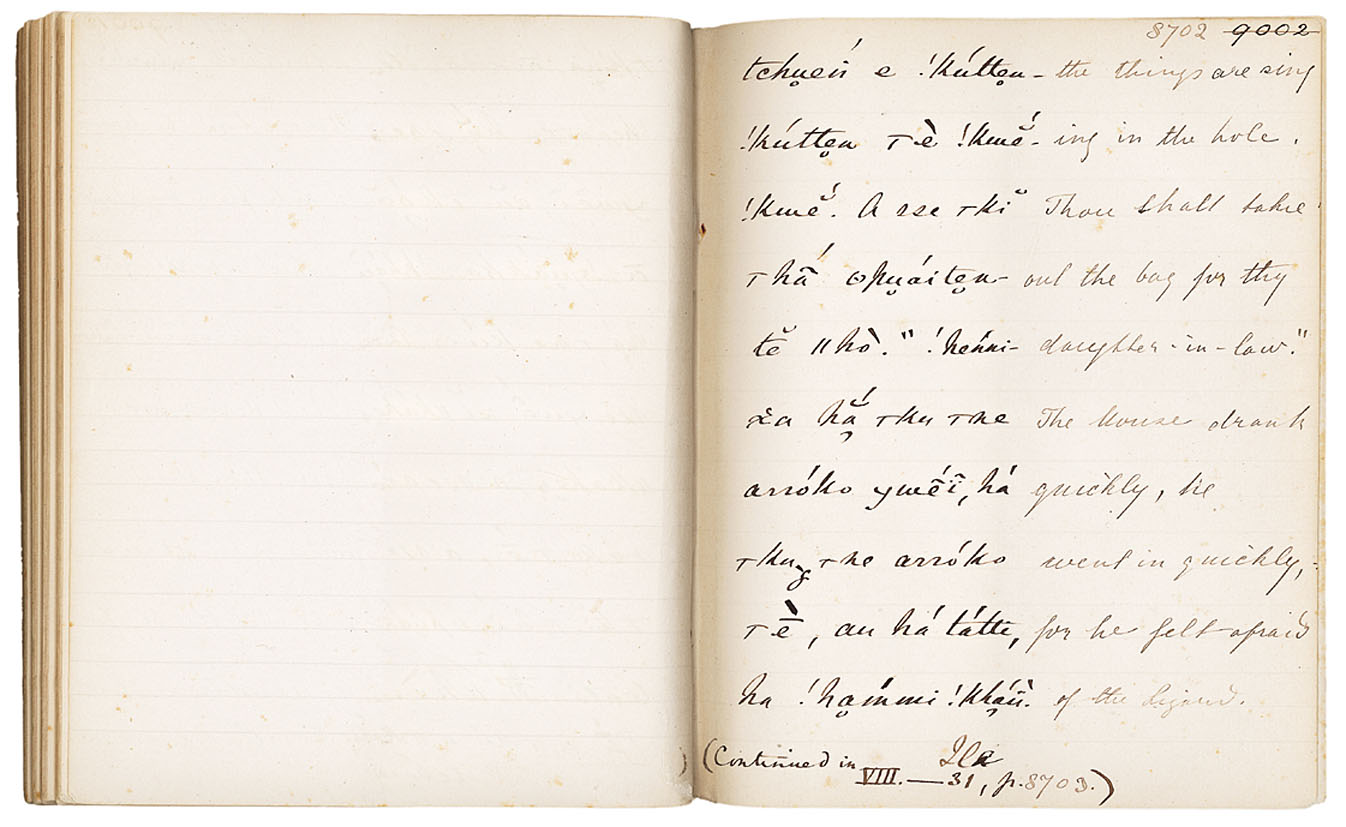 8702 9002
tchu̯eń e !kútte̯n - the things are sing
!kútte̯n ⊤è !kwé̆- ing in the hole.
!kwé̆. A sse ⊤kĭ Thou shalt take
⊤hā́ ʘpu̯áite̯n- out the bag for thy
tĕ ǁhò." daughter-in-law."
hắ̯ ⊤ku ⊤ne The Mouse drank
arróko há quickly, he
⊤ku̯g ⊤ne arróko went in quickly,
⊤ḕ, au há tátti, for he felt afraid
ha !ha̯ḿmi !kháu̯ṅ. of the Lizard.
(Continued in
VIII.—31, p. 8703.)